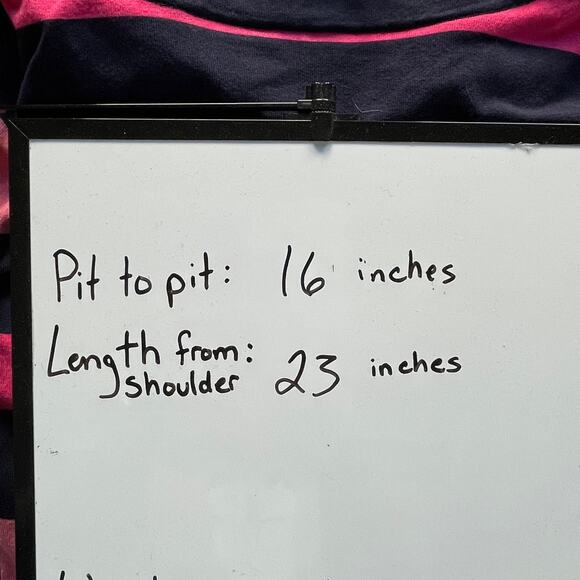 Pit to pit: 16 inches
Length from: 23 inches
shoulder